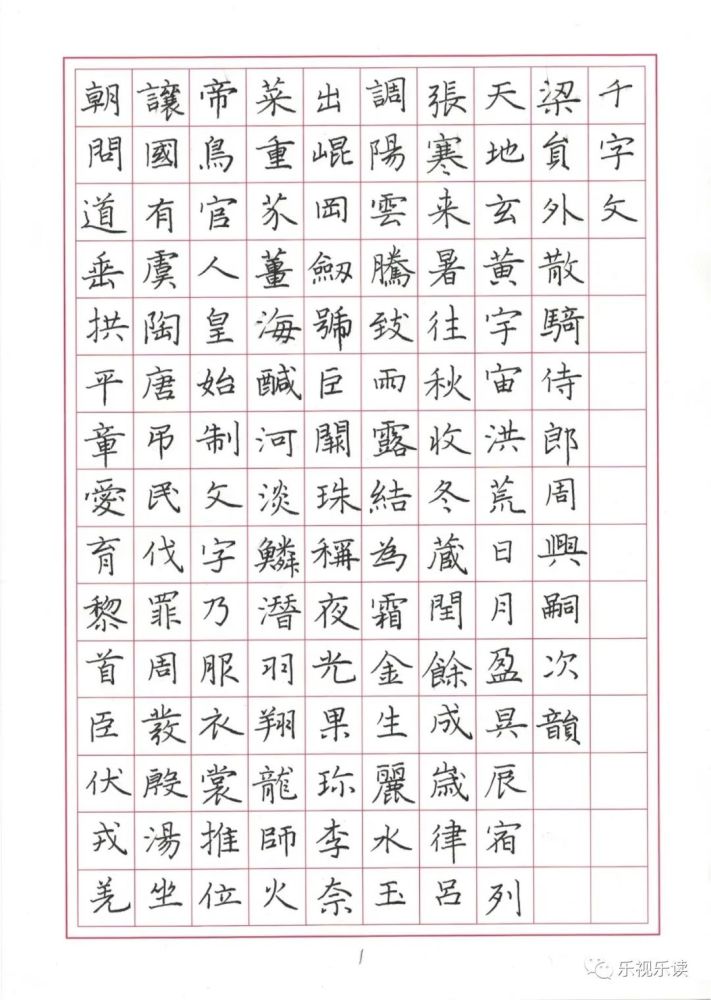 千字文
梁員外散騎侍郎周興嗣次韻
天地玄黃宇宙洪荒日月盈昃辰宿列
張寒来暑往秋收冬蔵閏餘成歲律呂
調陽雲騰致雨露結為霜金生麗水玉
出崐岡劔號巨闕珠稱夜光果珎李奈
菜重芥薑海鹹河淡鱗潛羽翔龍師火
帝鳥官人皇始制文字乃服衣裳推位
讓國有虞陶唐弔民伐罪周發殷湯坐
朝問道垂拱平章愛育黎首臣伏戎羌
1
乐视乐读